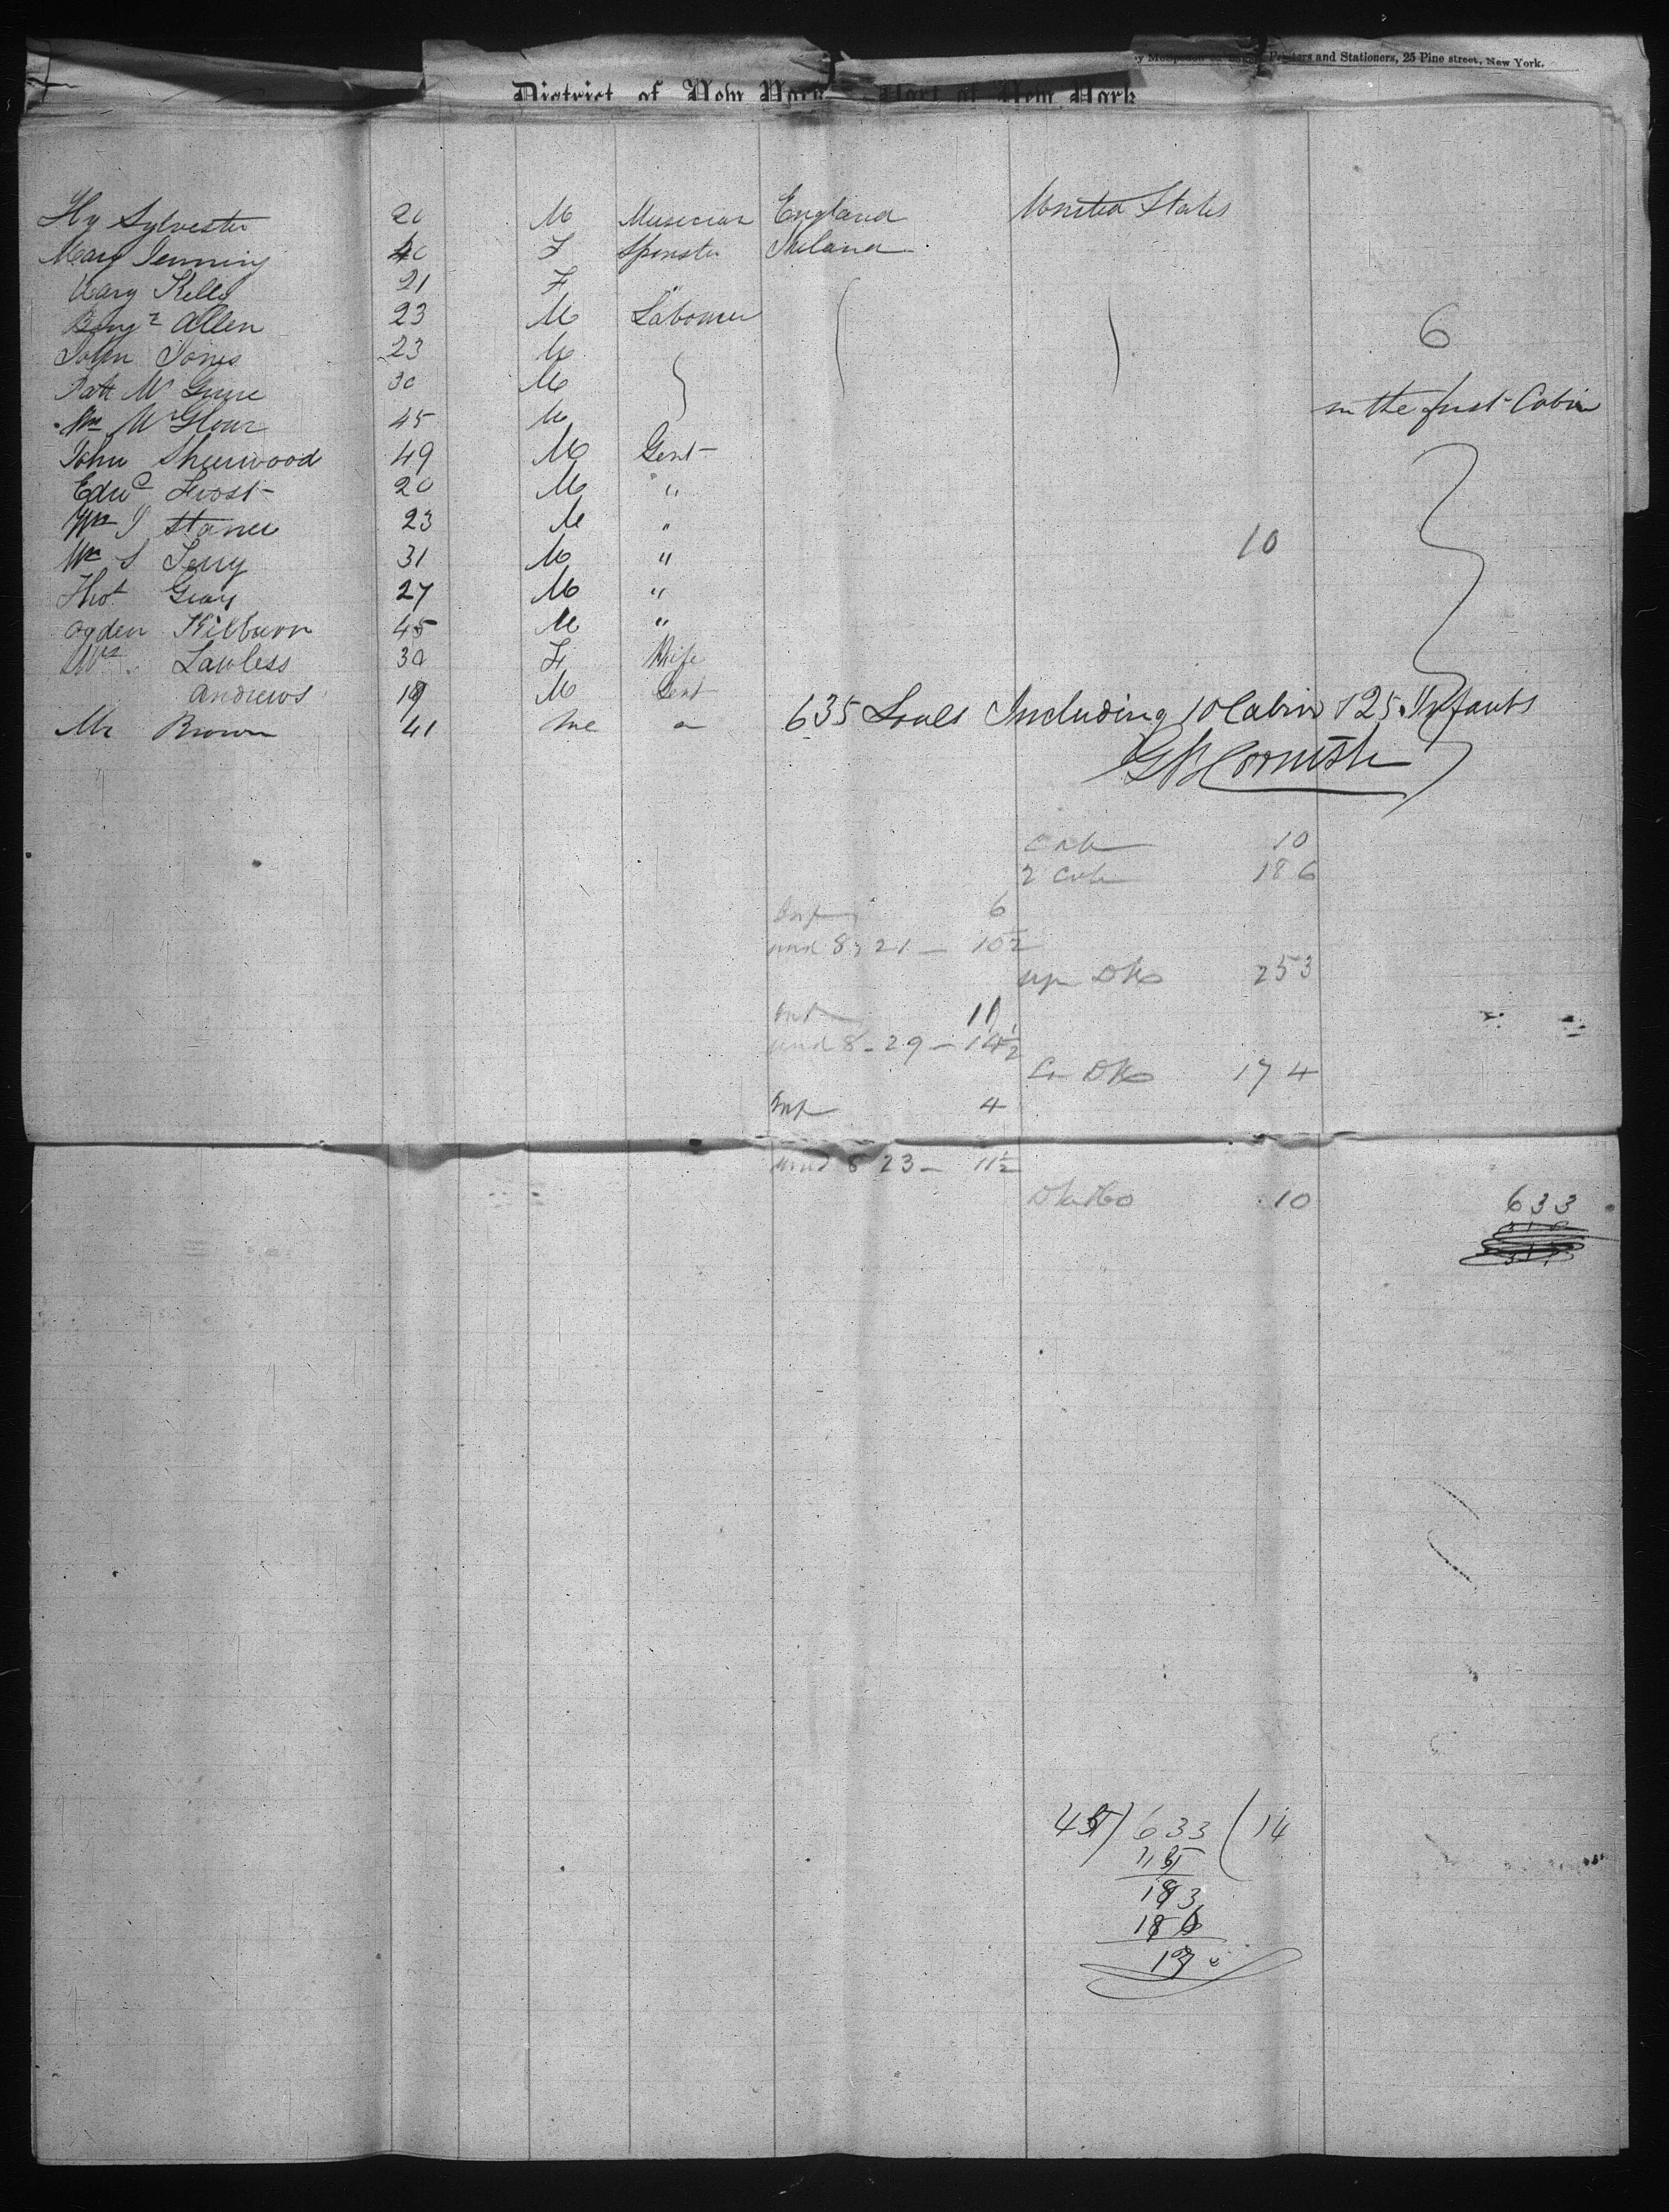 Printers and Stationers, 25 Pine street, New York.
District of New York Port of New York
Hy Sylvester 20 M Musician England United States
Mary Jenning 40 F Spinster Ireland
Mary Kelly 21 F "
Benjn Allen 23 M Labourer
John Jones 23 M
6
Patt Mc Guire 30 M
in the first Cabin
Wm Mc Glour 45 M
John Sheerwood 49 M Gent
Edwd Frost 20 M "
Wm J Stanee 23 M "
10
Wm S Terry 31 M "
Thos Gray 27 M "
Ogden Kilburn 45 M "
Mrs Lawless 30 F Wife
Andrews 19 M Gent
Mr Brown 41
635 Souls Including 10 Cabin & 25 Infants
G W Cornish
Cab 10
2 Cab 186
Inf 6
und 8 21 — 10½
up Dk 253
Inf 11
und 8 - 29 — 14½
Lr Dk 174
Inf 4
und 8 23 — 11½
Dk Ho 10
633
45) 633 (14
183